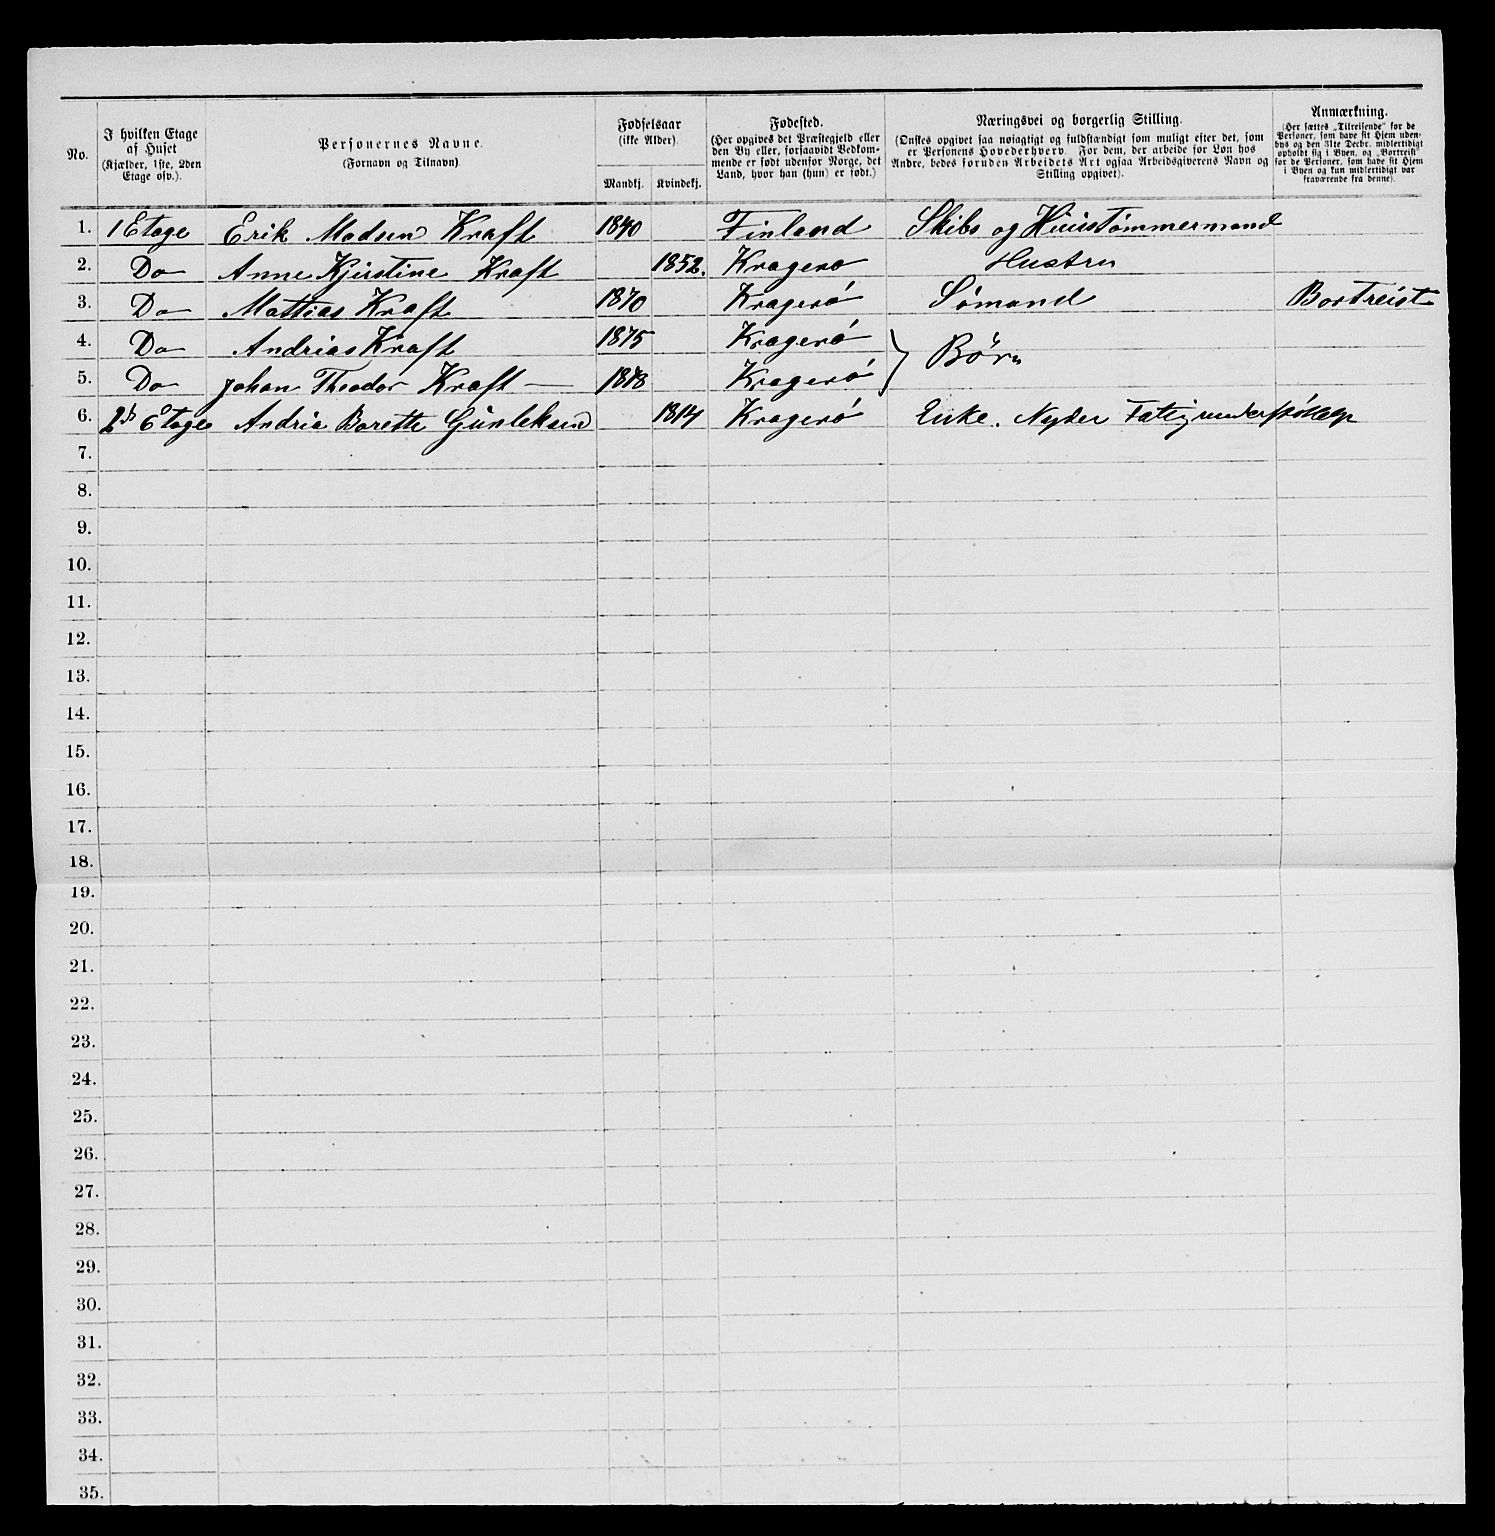 No.
I hvilken Etage
af Huset
(Kjælder, 1ste, 2den
Etage osv.).
Personernes Navne.
(Fornavn og Tilnavn).
Fødselsaar
(ikke Alder).
Mandkj.
Kvindekj.
Fødested.
(Her opgives det Præstegjeld eller
den By eller, forsaavidt Vedkom-
mende er født udenfor Norge, det
Land, hvor han (hun) er født.)
Næringsvei og borgerlig Stilling.
(Ønskes opgivet saa nøiagtigt og fuldstændigt som muligt efter det, som
er Personens Hovederhverv. For dem, der arbeide for Løn hos
Andre, bedes foruden Arbeidets Art ogsaa Arbeidsgiverens Navn og
Stilling opgivet).
Anmærkning.
(Her sættes „Tilreisende“ for de
Personer, som have sit Hjem uden-
bys og den 31te Decbr. midlertidigt
opholdt sig i Byen, og „Bortreist“
for de Personer, som have sit Hjem
i Byen og kun midlertidigt var
fraværende fra denne).
1. 1 Etage Erik Madsen Kraft 1840 Finland Skibs og Huustømmermand
2. Do Anne Kjirstine Kraft 1852. Kragerø Hustru
3. Do Mattias Kraft 1870 Kragerø Sømand Bortreist
4. Do Andrias Kraft 1875 Kragerø } Børn
5. Do Johan Theodor Kraft — 1878 Kragerø
6. Etage Andria Borette Gunleksen 1814 Kragerø Enke. Nyder Fattigunderstøttelse
7.
8.
9.
10.
11.
12.
13.
14.
15.
16.
17.
18.
19.
20.
21.
22.
23.
24.
25.
26.
27.
28.
29.
30.
31.
32.
33.
34.
35.